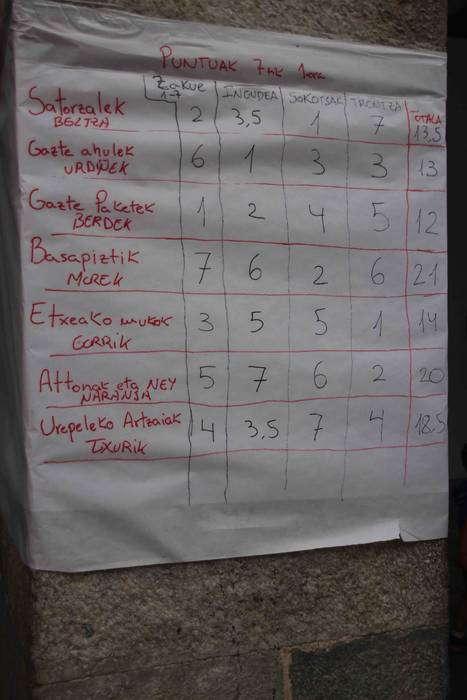 PUNTUAK 7tik 1era
Zakue INGUDEA SOKOTSAK TRONTZA TOTALA
1-7
Satorzalek 2 3,5 1 7 13,5
BELTZA
Gazte ahulek 6 1 3 3 13
URDIÑEK
Gazte Paketek 1 2 4 5 12
BERDEK
Basapiztik 7 6 2 6 21
MOREK
Etxeako mukok 3 5 5 1 14
GORRIK
Attonak eta NEY 5 7 6 2 20
NARANJA
Urepeleko Artzaiak 4 3,5 7 4 18,5
TXURIK